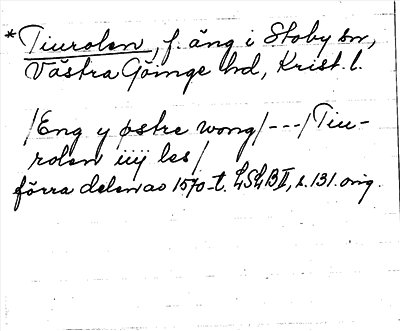 *Tiurolen, f. äng i Stoby sn,
Västra Göinge hd, Krist. l.
/Eng y østre wong/---/Tiu-
rolen iiij les/
förra delen av 1570-t. LSLB II, s. 131. orig.